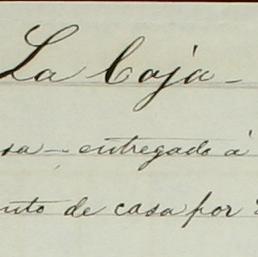 La Caja -
sa - entregado á
nto de casa por